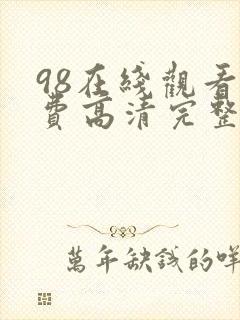 98在綫觀看
費高清完整
萬年缺錢的咩